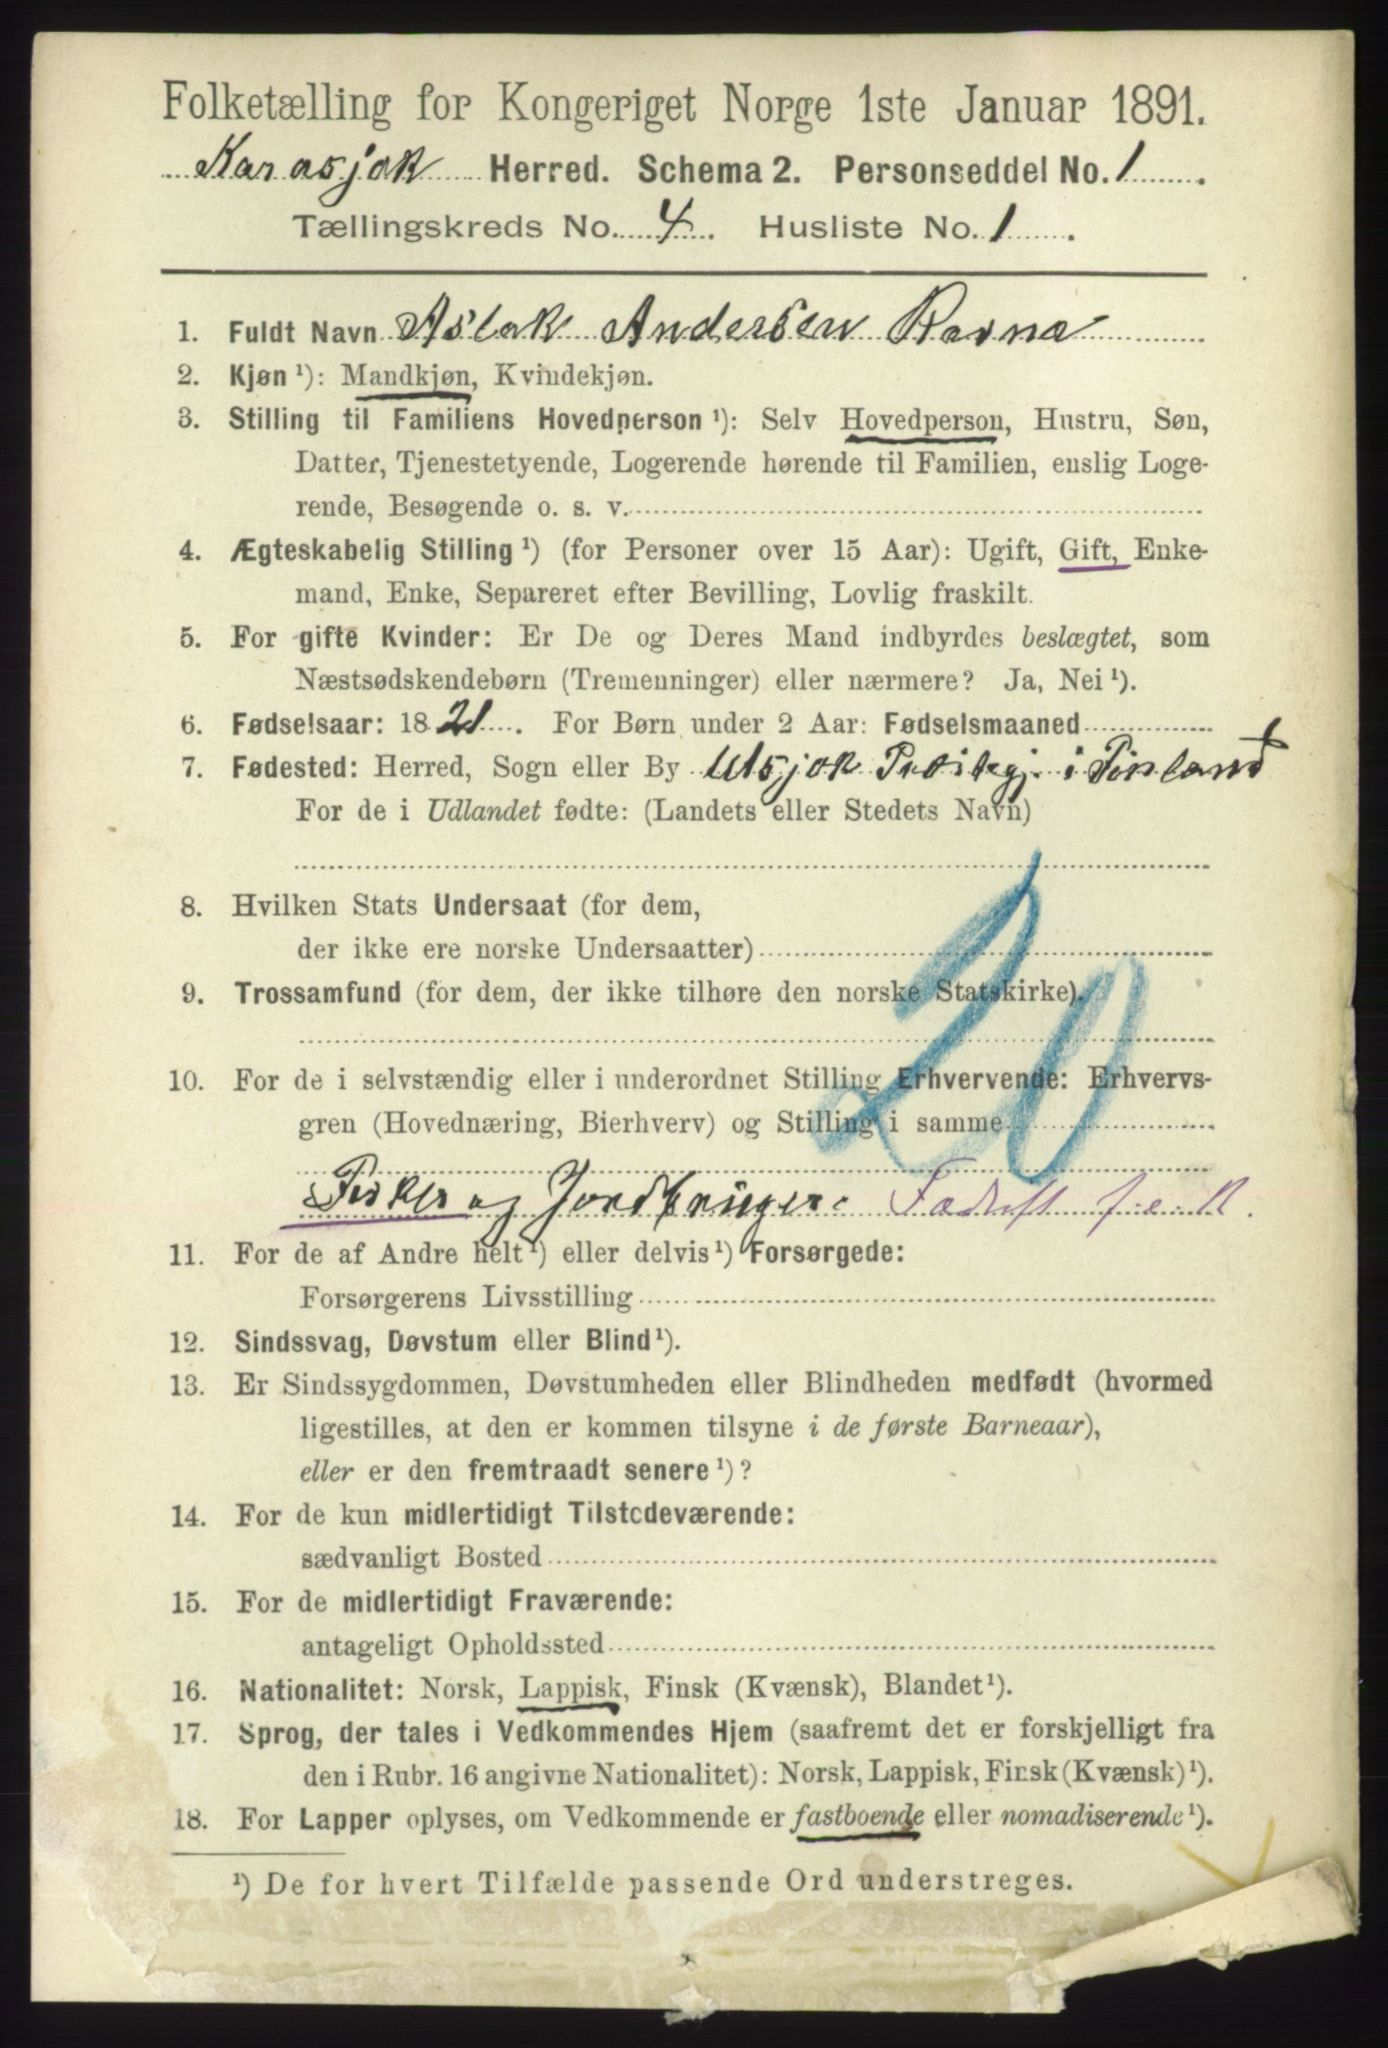 Folketælling for Kongeriget Norge 1ste Januar 1891.
Karasjok Herred. Schema 2. Personseddel No. 1
Tællingskreds No. 4. Husliste No. 1.
1. Fuldt Navn Aslak Andersen Ravna
2. Kjøn ¹): Mandkjøn, Kvindekjøn.
3. Stilling til Familiens Hovedperson ¹): Selv Hovedperson, Hustru, Søn,
Datter, Tjenestetyende, Logerende hørende til Familien, enslig Loge-
rende, Besøgende o. s. v.
4. Ægteskabelig Stilling ¹) (for Personer over 15 Aar): Ugift, Gift, Enke-
mand, Enke, Separeret efter Bevilling, Lovlig fraskilt.
5. For gifte Kvinder: Er De og Deres Mand indbyrdes beslægtet, som
Næstsødskendebørn (Tremenninger) eller nærmere? Ja, Nei ¹).
6. Fødselsaar: 1821. For Børn under 2 Aar: Fødselsmaaned
7. Fødested: Herred, Sogn eller By Utsjok Præstegj. i Finland
For de i Udlandet fødte: (Landets eller Stedets Navn)
8. Hvilken Stats Undersaat (for dem,
der ikke ere norske Undersaatter)
20
9. Trossamfund (for dem, der ikke tilhøre den norske Statskirke).
10. For de i selvstændig eller i underordnet Stilling Erhvervende: Erhvervs-
gren (Hovednæring, Bierhverv) og Stilling i samme
Fisker og Jordbruger.
11. For de af Andre helt ¹) eller delvis ¹) Forsørgede:
Forsørgerens Livsstilling
12. Sindssvag, Døvstum eller Blind ¹).
13. Er Sindssygdommen, Døvstumheden eller Blindheden medfødt (hvormed
ligestilles, at den er kommen tilsyne i de første Barneaar),
eller er den fremtraadt senere ¹)?
14. For de kun midlertidigt Tilstedeværende:
sædvanligt Bosted
15. For de midlertidigt Fraværende:
antageligt Opholdssted
16. Nationalitet: Norsk, Lappisk, Finsk (Kvænsk), Blandet ¹).
17. Sprog, der tales i Vedkommendes Hjem (saafremt det er forskjelligt fra
den i Rubr. 16 angivne Nationalitet): Norsk, Lappisk, Finsk (Kvænsk) ¹).
18. For Lapper oplyses, om Vedkommende er fastboende eller nomadiserende ¹).
¹) De for hvert Tilfælde passende Ord understreges.